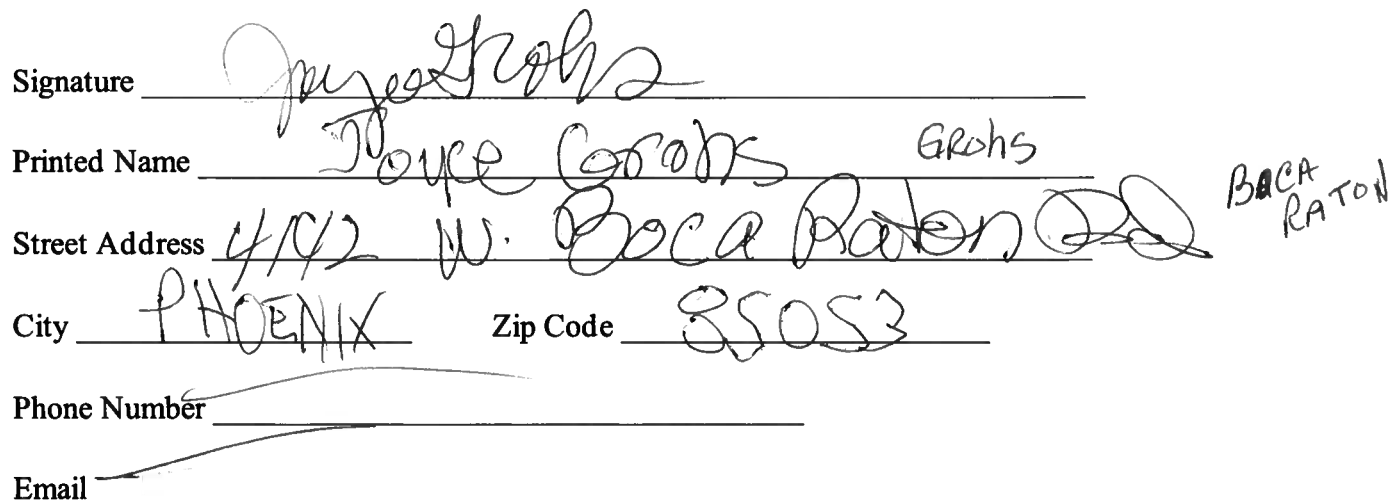 Signature Joyce Grohs
Printed Name Joyce Grohs GRohs
Street Address 4142 W. Boca Raton Rd BOCA RATON
City PHOENIX Zip Code 85053
Phone Number
Email